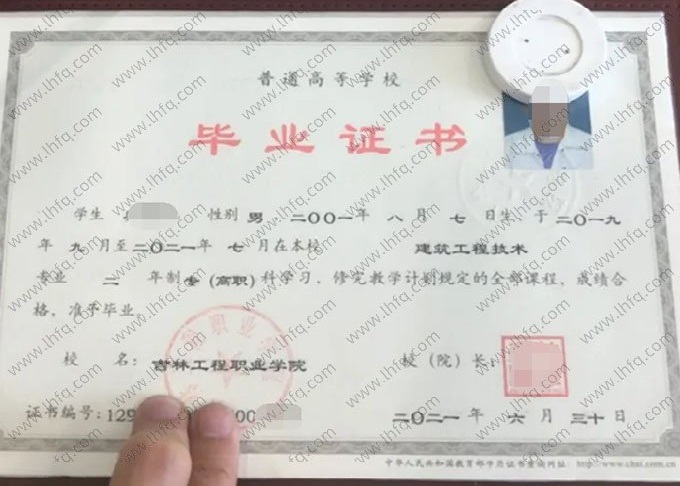 普通高等学校
毕业证书
学生 性别 男 二〇〇一年 八 月 七 日生，于二〇一九
年 九 月至二〇二一年 七 月在本校 建筑工程技术
专业 二 年制 专（高职）科学习，修完教学计划规定的全部课程，成绩合
格，准予毕业。
校 名：吉林工程职业学院 校（院）长：
证书编号：129 00 二〇二一 年 六 月 三十 日
中华人民共和国教育部学历证书查询网址：http://www.chsi.com.cn
www.lhfq.com